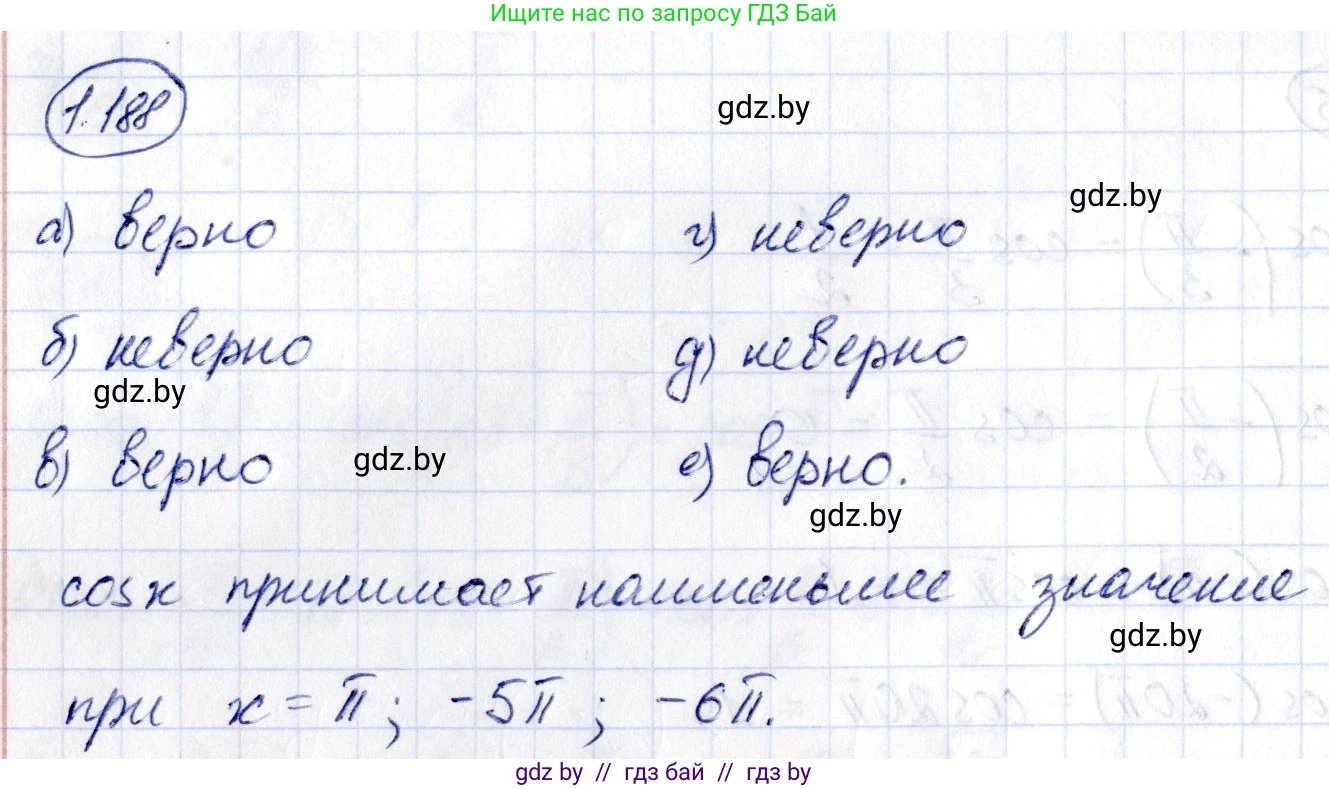 Ищите нас по запросу ГДЗ Бай
1.188
gdz.by
gdz.by
а) верно
г) неверно
б) неверно
д) неверно
gdz.by
в) верно
gdz.by
е) верно.
gdz.by
cos x принимает наименьшее значение
gdz.by
при x = π; -5π; -6π.
gdz by // гдз бай // гдз by